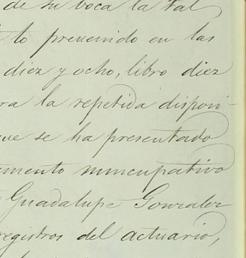 de su boca la tal
lo prevenido en las
diez y ocho, libro diez
ra la repetida disponi-
ue se ha presentado
mento nuncupativo
Guadalupe Gonzalez
registros del actuario,